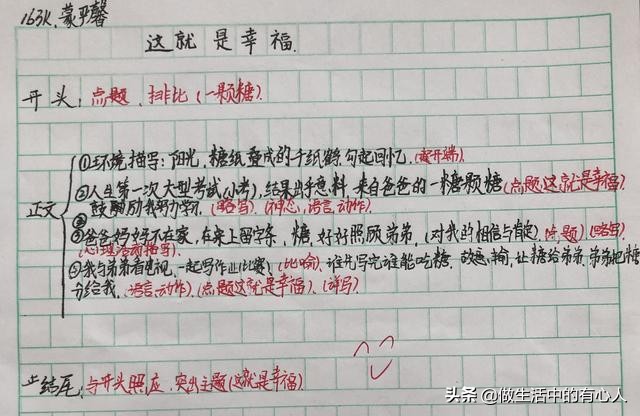 163K.蒙乎馨
这就是幸福.
开头:点题、排比(一颗糖).
正文
①环境描写:阳光,糖纸叠成的千纸鹤,勾起回忆.(起开端)
②人生第一次大型考试(小考),结果出乎意料,来自爸爸的一糖颗糖(点题:这就是幸福).
鼓励励我努力学习.(略写).(神态,语言,动作).
③爸爸妈妈不在家,在桌上留字条,糖,好好照顾弟弟,(对我的相信与肯定)(点题)(略写)
(心理活动描写).
我与弟弟看电视,一起写作业(比赛)(比喻).谁先写完谁能吃糖.故意输,让糖给弟弟.弟弟把糖
分给我.(语言、动作).(点题:这就是幸福).(详写)
结尾:与开头照应.突出主题(这就是幸福).
头条 @做生活中的有心人